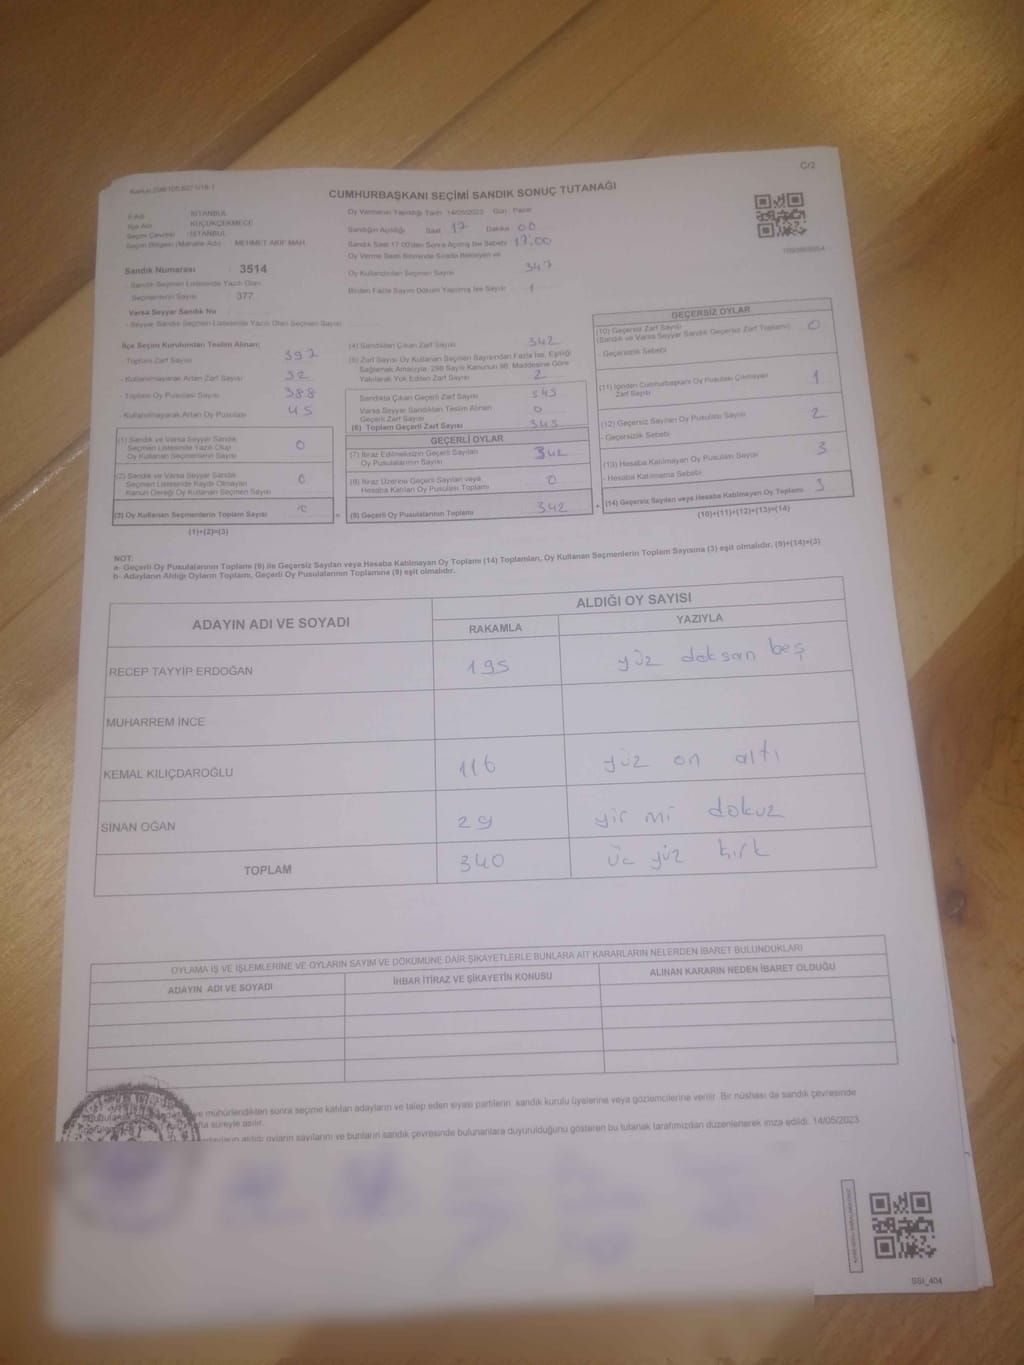 C/2
CUMHURBAŞKANI SEÇİMİ SANDIK SONUÇ TUTANAĞI
İl Adı : İSTANBUL
İlçe Adı : KÜÇÜKÇEKMECE
Seçim Çevresi : İSTANBUL
Seçim Bölgesi (Mahalle Adı) : MEHMET AKİF MAH.
Sandık Numarası : 3514
- Sandık Seçmen Listesinde Yazılı Olan
Seçmenlerin Sayısı : 377
Varsa Seyyar Sandık No :
- Seyyar Sandık Seçmen Listesinde Yazılı Olan Seçmen Sayısı :
Oy Vermenin Yapıldığı Tarih 14/05/2023 Gün : Pazar
Sandığın Açıldığı Saat 17 Dakika 00
Sandık Saat 17:00'den Sonra Açılmış İse Sebebi 17:00
Oy Verme Saati Bitiminde Sırada Bekleyen ve
Oy Kullandırılan Seçmen Sayısı 347
Birden Fazla Sayım Döküm Yapılmış İse Sayısı 1
İlçe Seçim Kurulundan Teslim Alınan;
- Toplam Zarf Sayısı 397
- Kullanılmayarak Artan Zarf Sayısı 32
- Toplam Oy Pusulası Sayısı 388
- Kullanılmayarak Artan Oy Pusulası 45
(1) Sandık ve Varsa Seyyar Sandık
Seçmen Listesinde Yazılı Olup
Oy Kullanan Seçmen Sayısı 0
(2) Sandık ve Varsa Seyyar Sandık
Seçmen Listesinde Kayıtlı Olmayan
Kanun Gereği Oy Kullanan Seçmen Sayısı 0
(3) Oy Kullanan Seçmenlerin Toplam Sayısı 0
(1)+(2)=(3)
(4) Sandıktan Çıkan Zarf Sayısı 342
(5) Zarf Sayısı Oy Kullanan Seçmen Sayısından Fazla İse, Eşitliği
Sağlamak Amacıyla; 298 Sayılı Kanunun 98. Maddesine Göre
Yakılarak Yok Edilen Zarf Sayısı 2
Sandıkta Çıkan Geçerli Zarf Sayısı 345
Varsa Seyyar Sandıktan Teslim Alınan
Geçerli Zarf Sayısı 0
(6) Toplam Geçerli Zarf Sayısı 345
GEÇERLİ OYLAR
(7) İtiraz Edilmeksizin Geçerli Sayılan
Oy Pusulalarının Sayısı 342
(8) İtiraz Üzerine Geçerli Sayılan veya
Hesaba Katılan Oy Pusulası Toplamı 0
= (9) Geçerli Oy Pusulalarının Toplamı 342 +
GEÇERSİZ OYLAR
(10) Geçersiz Zarf Sayısı
(Sandık ve Varsa Seyyar Sandık Geçersiz Zarf Toplamı) 0
- Geçersizlik Sebebi:
(11) İçinden Cumhurbaşkanı Oy Pusulası Çıkmayan
Zarf Sayısı 1
(12) Geçersiz Sayılan Oy Pusulası Sayısı 2
- Geçersizlik Sebebi:
(13) Hesaba Katılmayan Oy Pusulası Sayısı 3
- Hesaba Katılmama Sebebi:
(14) Geçersiz Sayılan veya Hesaba Katılmayan Oy Toplamı 3
(10)+(11)+(12)+(13)=(14)
NOT:
a- Geçerli Oy Pusulalarının Toplamı (9) ile Geçersiz Sayılan veya Hesaba Katılmayan Oy Toplamı (14) Toplamları, Oy Kullanan Seçmenlerin Toplam Sayısına (3) eşit olmalıdır. (9)+(14)=(3)
b- Adayların Aldığı Oyların Toplamı, Geçerli Oy Pusulalarının Toplamına (9) eşit olmalıdır.
ADAYIN ADI VE SOYADI ALDIĞI OY SAYISI
RAKAMLA YAZIYLA
RECEP TAYYİP ERDOĞAN 195 yüz doksan beş
MUHARREM İNCE
KEMAL KILIÇDAROĞLU 116 yüz on altı
SİNAN OĞAN 29 yir mi dokuz
TOPLAM 340 üc yüz kırk
OYLAMA İŞ VE İŞLEMLERİNE VE OYLARIN SAYIM VE DÖKÜMÜNE DAİR ŞİKAYETLERLE BUNLARA AİT KARARLARIN NELERDEN İBARET BULUNDUKLARI
ADAYIN ADI VE SOYADI İHBAR İTİRAZ VE ŞİKAYETİN KONUSU ALINAN KARARIN NEDEN İBARET OLDUĞU
ve mühürlendikten sonra seçime katılan adayların ve talep eden siyasi partilerin sandık kurulu üyelerine veya gözlemcilerine verilir. Bir nüshası da sandık çevresinde
hafta süreyle asılır.
adayların aldığı oyların sayılarını ve bunların sandık çevresinde bulunanlara duyurulduğunu gösteren bu tutanak tarafımızdan düzenlenerek imza edildi. 14/05/2023
SSI_404